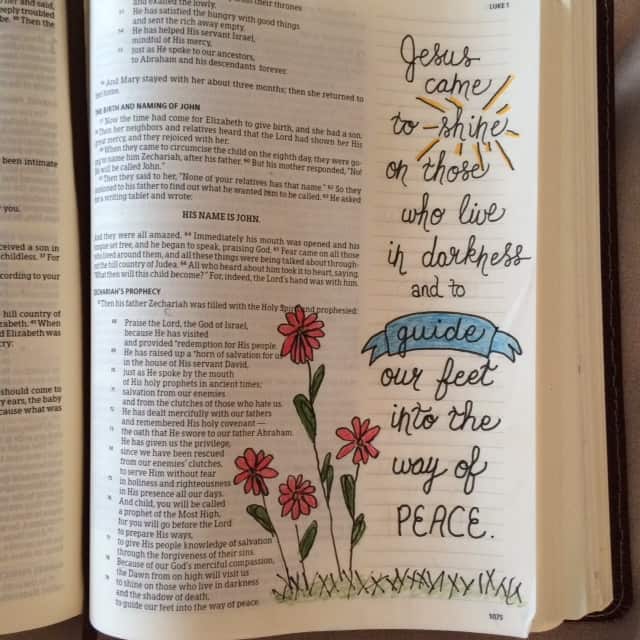 been intimate
you.
ceived a son in
childless. For
cording to your
hill country of
zabeth. When
d Elizabeth was
cry:
should come to
y ears, the baby
cause what was
LUKE 1
and exalted the lowly.
He has satisfied the hungry with good things
and sent the rich away empty.
He has helped His servant Israel,
mindful of His mercy,
just as He spoke to our ancestors,
to Abraham and his descendants forever.
And Mary stayed with her about three months; then she returned to
her home.
THE BIRTH AND NAMING OF JOHN
Now the time had come for Elizabeth to give birth, and she had a son.
Then her neighbors and relatives heard that the Lord had shown her His
great mercy, and they rejoiced with her.
When they came to circumcise the child on the eighth day, they were go-
ing to name him Zechariah, after his father. 60 But his mother responded, "No!
He will be called John."
Then they said to her, "None of your relatives has that name." 62 So they
motioned to his father to find out what he wanted him to be called. 63 He asked
for a writing tablet and wrote:
HIS NAME IS JOHN.
And they were all amazed. 64 Immediately his mouth was opened and his
tongue set free, and he began to speak, praising God. 65 Fear came on all those
who lived around them, and all these things were being talked about through-
out the hill country of Judea. 66 All who heard about him took it to heart, saying,
"What then will this child become?" For, indeed, the Lord's hand was with him.
ZECHARIAH'S PROPHECY
Then his father Zechariah was filled with the Holy Spirit and prophesied:
68 Praise the Lord, the God of Israel,
because He has visited
and provided redemption for His people.
He has raised up a horn of salvation for us
in the house of His servant David,
just as He spoke by the mouth
of His holy prophets in ancient times;
salvation from our enemies
and from the clutches of those who hate us.
He has dealt mercifully with our fathers
and remembered His holy covenant —
the oath that He swore to our father Abraham.
He has given us the privilege,
since we have been rescued
from our enemies' clutches,
to serve Him without fear
in holiness and righteousness
in His presence all our days.
And child, you will be called
a prophet of the Most High,
for you will go before the Lord
to prepare His ways,
to give His people knowledge of salvation
through the forgiveness of their sins.
Because of our God's merciful compassion,
the Dawn from on high will visit us
to shine on those who live in darkness
and the shadow of death,
to guide our feet into the way of peace.
Jesus
came
to shine
on those
who live
in darkness
and to
guide
our feet
into the
way of
PEACE.
1075